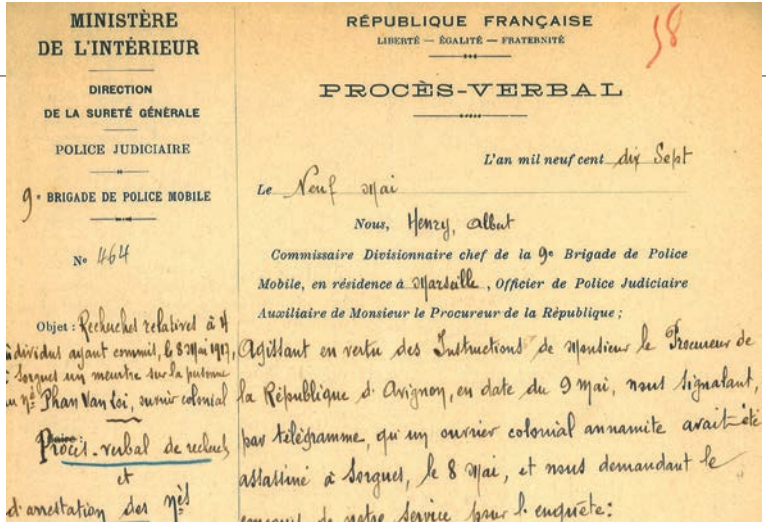 MINISTÈRE
DE L'INTÉRIEUR
DIRECTION
DE LA SURETÉ GÉNÉRALE
POLICE JUDICIAIRE
9e BRIGADE DE POLICE MOBILE
No 464
Objet : Recherches relatives à 4
individus ayant commis, le 8 Mai 1917,
à Sorgues un meurtre sur la personne
du né Phan Van Loi, ouvrier colonial
Procès-verbal de recherches
et
d'arrestation des nés
RÉPUBLIQUE FRANÇAISE
LIBERTÉ — ÉGALITÉ — FRATERNITÉ
58
PROCÈS-VERBAL
L'an mil neuf cent dix Sept
Le Neuf Mai
Nous, Henry, Albert
Commissaire Divisionnaire chef de la 9e Brigade de Police
Mobile, en résidence à Marseille, Officier de Police Judiciaire
Auxiliaire de Monsieur le Procureur de la République ;
Agissant en vertu des Instructions de Monsieur le Procureur de
la République d'Avignon, en date du 9 mai, nous signalant,
par télégramme, qu'un ouvrier colonial annamite avait été
assassiné à Sorgues, le 8 Mai, et nous demandant le
concours de notre Service pour l'enquête :